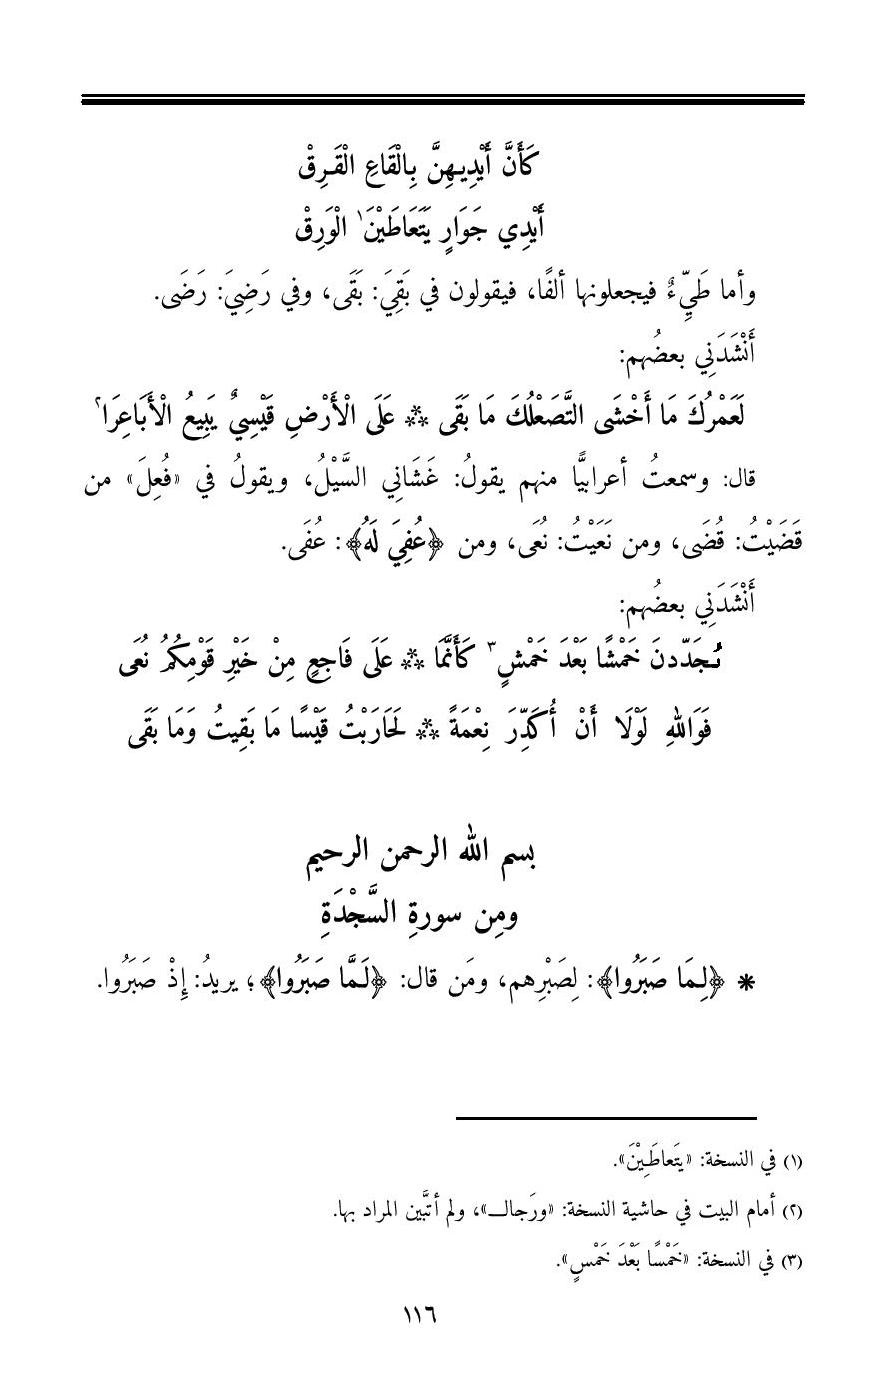 كَأَنَّ أَيْدِيهِنَّ بِالْقَاعِ الْقَرِقْ
أَيْدِي جَوَارٍ يَتَعَاطَيْنَ١ الْوَرِقْ
وأما طَيِّءٌ فيجعلونها ألفًا، فيقولون في بَقِيَ: بَقَى، وفي رَضِيَ: رَضَى.
أَنْشَدَنِي بعضُهم:
لَعَمْرُكَ مَا أَخْشَى التَّصَعْلُكَ مَا بَقَى ** عَلَى الْأَرْضِ قَيْسِيٌّ يَبِيعُ الْأَبَاعِرَا٢
قال: وسمعتُ أعرابيًّا منهم يقولُ: غَشَانِي السَّيْلُ، ويقولُ في «فُعِلَ» من
قَضَيْتُ: قُضَى، ومن نَعَيْتُ: نُعَى، ومن ﴿عُفِيَ لَهُ﴾: عُفَى.
أَنْشَدَنِي بعضُهم:
تُجَدّدنَ خَمْشًا بَعْدَ خَمْشٍ٣ كَأَنَّمَا ** عَلَى فَاجِعٍ مِنْ خَيْرِ قَوْمِكُمُ نُعَى
فَوَاللهِ لَوْلَا أَنْ أُكَدِّرَ نِعْمَةً ** لَحَارَبْتُ قَيْسًا مَا بَقِيتُ وَمَا بَقَى
بسم الله الرحمن الرحيم
ومِن سورةِ السَّجْدَةِ
* ﴿لِمَا صَبَرُوا﴾: لِصَبْرِهم، ومَن قال: ﴿لَمَّا صَبَرُوا﴾؛ يريدُ: إِذْ صَبَرُوا.
(١) في النسخة: «يتَعاطَِيْنَ».
(٢) أمام البيت في حاشية النسخة: «ورَجالـــ»، ولم أتبَّين المراد بها.
(٣) في النسخة: «خَمْسًا بَعْدَ خَمْسٍ».
١١٦